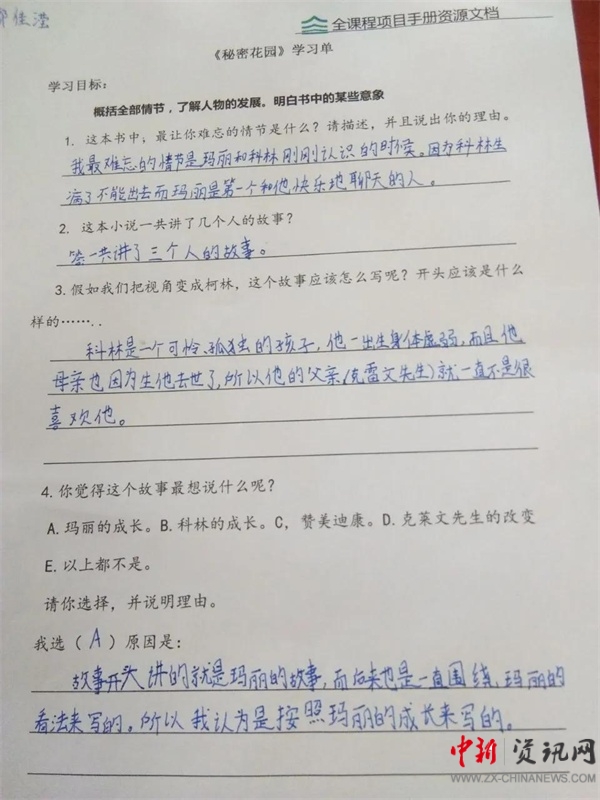 佳滢
全课程项目手册资源文档
《秘密花园》学习单
学习目标：
概括全部情节，了解人物的发展。明白书中的某些意象
1. 这本书中，最让你难忘的情节是什么？请描述，并且说出你的理由。
我最难忘的情节是玛丽和科林刚刚认识的时候。因为科林生
病了不能出去而玛丽是第一个和他快乐地聊天的人。
2. 这本小说一共讲了几个人的故事？
答一共讲了三个人的故事。
3. 假如我们把视角变成柯林，这个故事应该怎么写呢？开头应该是什么
样的……..
科林是一个可怜、孤独的孩子，他一出生身体虚弱，而且他
母亲也因为生他去世了，所以他的父亲（克雷文先生）就一直不是很
喜欢他。
4. 你觉得这个故事最想说什么呢？
A. 玛丽的成长。B. 科林的成长。C，赞美迪康。D. 克莱文先生的改变
E. 以上都不是。
请你选择，并说明理由。
我选（ A ）原因是：
故事开头讲的就是玛丽的故事，而后来也是一直围绕玛丽的
看法来写的。所以我认为是按照玛丽的成长来写的。
中新资讯网
WWW.ZX-CHINANEWS.COM